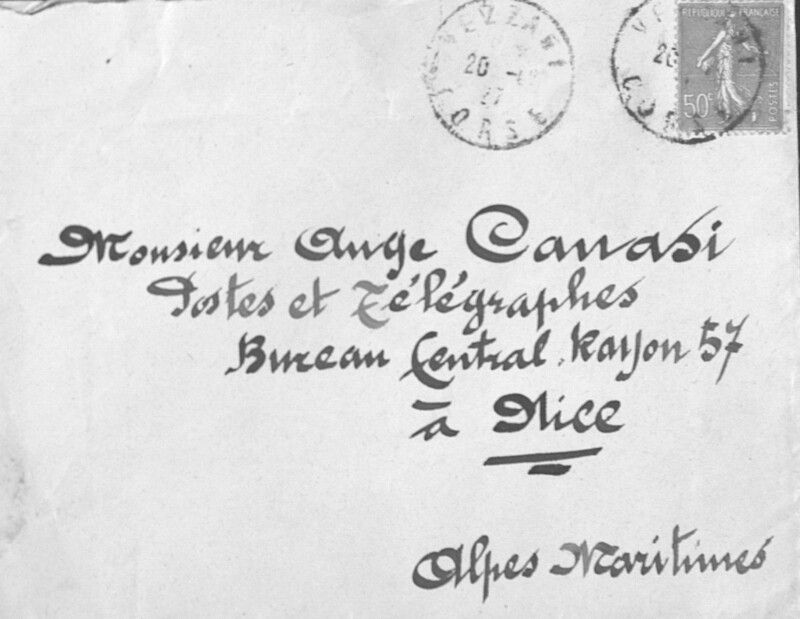 VEZZANI
20
CORSE
RÉPUBLIQUE FRANÇAISE
50c
POSTES
Monsieur Ange Canasi
Postes et Télégraphes
Bureau Central. Rayon 57
à Nice
Alpes Maritimes